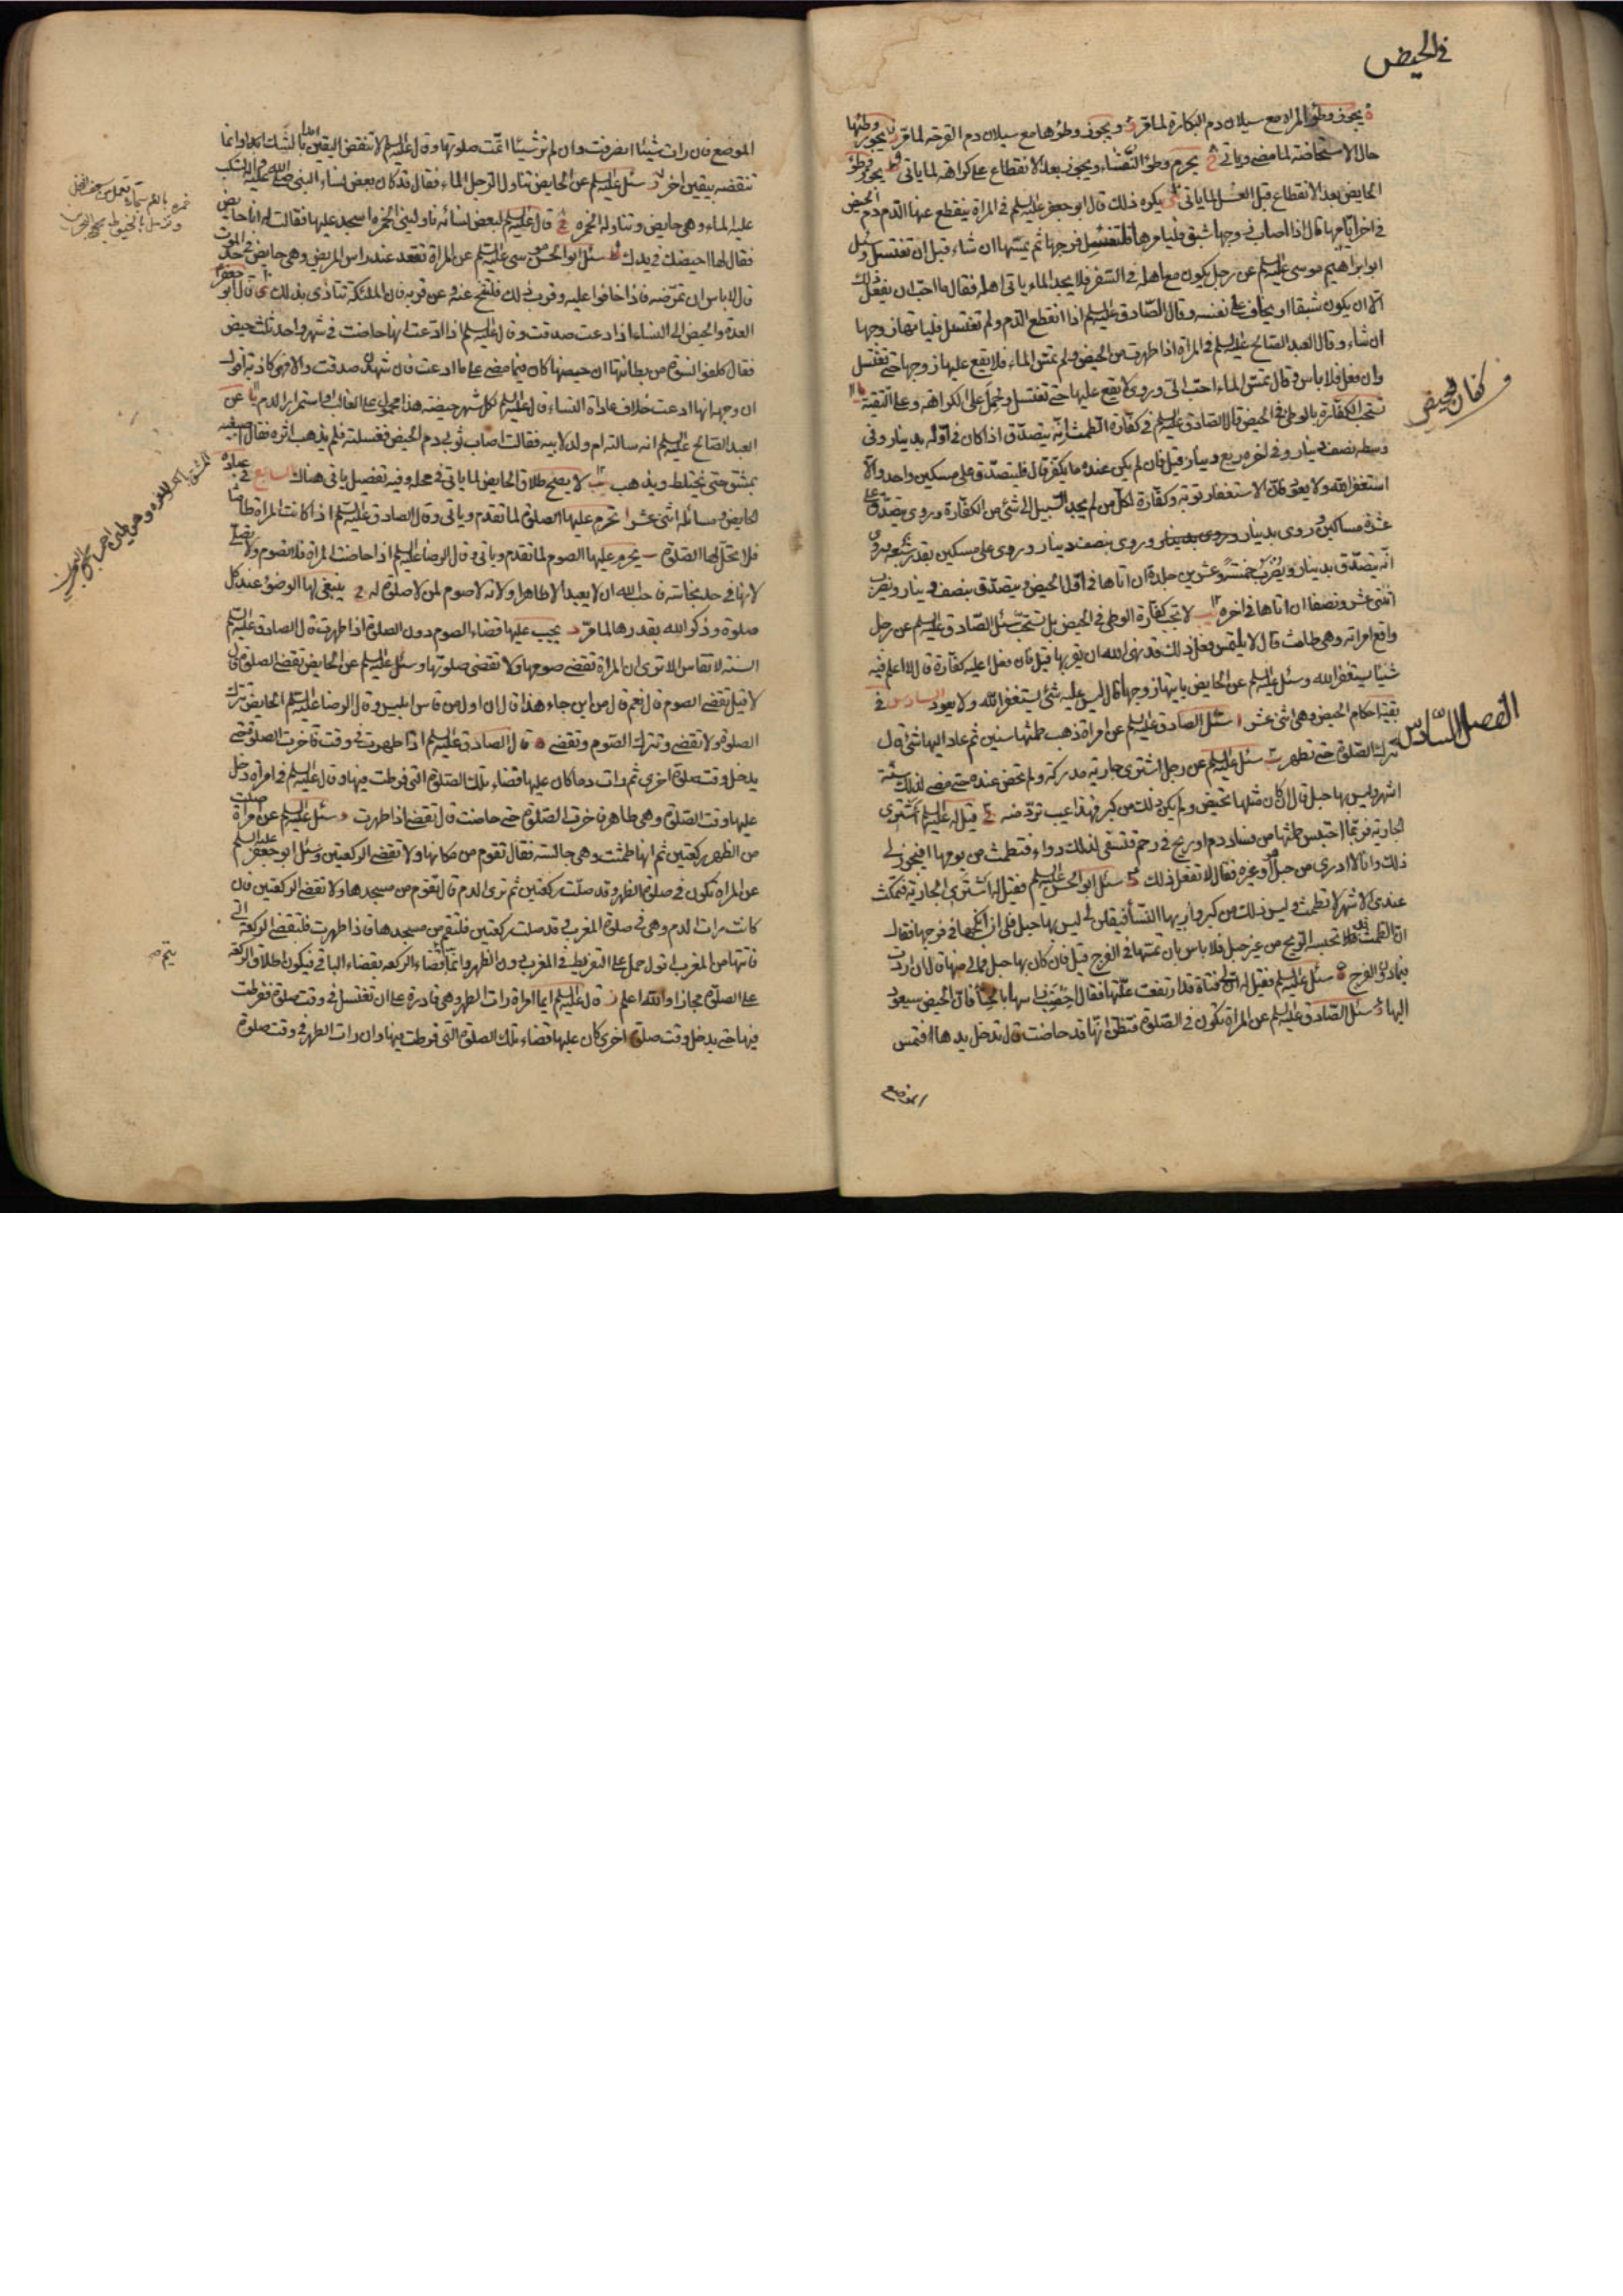 في الحيض
ه يجوز وطؤ المراة مع سيلان دم البكارة لما مر و ويجوز وطؤها مع سيلان دم القرحة لما مر ز يجوز وطئها
حال الاستحاضة لما مضى وياتى ح يحرم وطؤ النفساء ويجوز بعد الانقطاع على كراهة لما ياتى ط يجوز وطؤ
الحايض بعد الانقطاع قبل الغسل لما ياتى ى يكره ذلك قال ابو جعفر عليه السلم في المراة ينقطع عنها الدم دم الحيض
في اخر ايامها قال اذا اصاب زوجها شبق فليامرها فلتغسل فرجها ثم يمسها ان شاء قبل ان تغتسل وسئل
ابو ابراهيم موسى عليه السلم عن رجل يكون مع اهله في السفر فلا يجد الماء ياتى اهله فقال ما احب ان يفعل ذلك
الا ان يكون شبقا او يخاف على نفسه وقال الصادق عليه السلم اذا انقطع الدم ولم تغتسل فلياتها زوجها
ان شاء وقال العبد الصالح عليه السلم في المراة اذا طهرت من الحيض ولم تمس الماء فلا يقع عليها زوجها حتى تغتسل
وان فعل فلا باس وقال تمس الماء احب الى وروى لا يقع عليها حتى تغتسل وحمل على الكراهة وعلى التقية يا
وكفارة الحيض
تستحب الكفارة بالوطى في الحيض قال الصادق عليه السلم في كفارة الطمث انه يتصدق اذا كان في اوله بدينار وفى
وسطه نصف دينار وفى اخره ربع دينار قيل فان لم يكن عنده ما يكفر قال فليتصدق على مسكين واحد والا
استغفر الله ولا يعود فان الاستغفار توبة وكفارة لكل من لم يجد السبيل الى شئ من الكفارة وروى يتصدق على
عشرة مساكين وروى بدينار وروى بنصف دينار وروى على مسكين بقدر شبعه وروى
انه يتصدق بدينار ويضرب خمسة وعشرين جلدة ان اتاها في اول الحيض ويتصدق بنصف دينار ويضرب
اثنتى عشر ونصفا ان اتاها في اخره يب لا تجب كفارة الوطى في الحيض بل تستحب سئل الصادق عليه السلم عن رجل
واقع امراته وهى طامث قال لا يلتمس فعل ذلك قد نهى الله ان يقربها قيل فان فعل اعليه كفارة قال لا اعلم فيه
شيئا يستغفر الله وسئل عليه السلم عن الحايض ياتيها زوجها قال ليس عليه شئ يستغفر الله ولا يعود السادس في
الفصل السادس
بقية احكام الحيض وهى اثنى عشر ا سئل الصادق عليه السلم عن امراة ذهب طمثها سنين ثم عاد اليها شئ قال
تترك الصلوة حتى تطهر ب سئل عليه السلم عن رجل اشترى جارية مدركة ولم تحض عنده حتى مضى لذلك ستة
اشهر وليس بها حبل قال ان كان مثلها تحيض ولم يكن ذلك من كبر فهذا عيب تردّ منه ج قيل له عليه السلم اشترى
الجارية فربما احتبس طمثها من فساد دم او ريح في رحم فتسقى لذلك دواء فتطمث من يومها افيجوز لى
ذلك وانا لا ادرى من حبل او غيره فقال لا تفعل ذلك د سئل ابو الحسن عليه السلم فقيل له اشترى الجارية فتمكث
عندى الاشهر لا تطمث وليس ذلك من كبر واريها النساء فيقلن لى ليس بها حبل فلى ان انكحها في فرجها فقال
ان الطمث قد تحبسه الريح من غير حبل فلا باس بان تمسها في الفرج قيل فان كان بها حبل فما لى منها قال ان اردت
فيما دون الفرج ه سئل عليه السلم فقيل له ان لى فتاة قد ارتفعت علتها فقال اخضب راسها بالحناء فان الحيض سيعود
اليها و سئل الصادق عليه السلم عن المراة تكون في الصلوة فتظن انها قد حاضت قال تدخل يدها فتمس
الموضع
الموضع فان رات شيئا انصرفت وان لم تر شيئا اتمت صلوتها وقال عليه السلم لا تنقض اليقين ابدا بالشك وانما
تنقضه بيقين اخر ز سئل عليه السلم عن الحايض تناول الرجل الماء فقال قد كان بعض نساء النبى صلى الله عليه واله تسكب
عليه الماء وهى حايض وتناوله الخمرة ح قال عليه السلم لبعض نسائه ناولينى الخمرة اسجد عليها فقالت له انا حايض
فقال لها احيضك في يدك ط سئل ابو الحسن موسى عليه السلم عن المراة تقعد عند راس المريض وهى حايض في حد الموت
قال لا باس ان تمرضه فاذا خافوا عليه وقرب ذلك فلتنح عنه وعن قربه فان الملئكة تتاذى بذلك ى قال ابو جعفر
العدة والحيض الى النساء اذا ادعت صدقت وقال عليه السلم اذا ادعت انها حاضت في شهر واحد ثلث حيض
فقال كلفوا نسوة من بطانتها ان حيضها كان فيما مضى على ما ادعت فان شهدن صدقت والا فهى كاذبة اقول
ان وجهه انها ادعت خلاف عادة النساء قال عليه السلم لكل شهر حيضة هذا محمول على الغالب او استمرار الدم يا عن
العبد الصالح عليه السلم انه سالته ام ولد لابيه فقالت اصاب ثوبى دم الحيض فغسلته فلم يذهب اثره فقال اصبغيه
بمشق حتى يختلط ويذهب يب لا يصح طلاق الحايض لما ياتى في محله وفيه تفصيل ياتى هناك السابع في عبادة
الحايض ومسائله اثنى عشر ا تحرم عليها الصلوة لما تقدم وياتى وقال الصادق عليه السلم اذا كانت المراة طامثا
فلا تحل لها الصلوة ب يحرم عليها الصوم لما تقدم وياتى وقال الرضا عليه السلم اذا حاضت المراة فلا تصوم ولا تصلى
لانها في حد نجاسة فاحب الله ان لا يعبد الا طاهرا ولانه لا صوم لمن لا صلوة له ج ينبغى لها الوضوء عند كل
صلوة وذكر الله بقدرها لما مر د يجب عليها قضاء الصوم دون الصلوة اذا طهرت قال الصادق عليه السلم
السنة لا تقاس الا ترى ان المراة تقضى صومها ولا تقضى صلوتها وسئل عليه السلم عن الحايض تقضى الصلوة قال
لا قيل تقضى الصوم قال نعم قال من اين جاء هذا قال ان اول من قاس ابليس وقال الرضا عليه السلم الحايض تترك
الصلوة ولا تقضى وتترك الصوم وتقضى ه قال الصادق عليه السلم اذا طهرت في وقت فاخرت الصلوة حتى
يدخل وقت صلوة اخرى ثم رات دما كان عليها قضاء تلك الصلوة التى فرطت فيها وقال عليه السلم في امراة دخل
عليها وقت الصلوة وهى طاهر فاخرت الصلوة حتى حاضت قال تقضى اذا طهرت و سئل عليه السلم عن امراة صلت
من الظهر ركعتين ثم انها طمثت وهى جالسة فقال تقوم من مكانها ولا تقضى الركعتين وسئل ابو جعفر عليه السلم
عن المراة تكون في صلوة الظهر وقد صلت ركعتين ثم ترى الدم قال تقوم من مسجدها ولا تقضى الركعتين فان
كانت رات الدم وهى في صلوة المغرب وقد صلت ركعتين فلتقم من مسجدها فاذا طهرت فلتقضى الركعة التى
فاتتها من المغرب اقول حمل على التفريط في المغرب دون الظهر وانما قضاء الركعة بقضاء الباقى فيكون اطلاق الركعة
على الصلوة مجازا والله اعلم ز قال عليه السلم ايما امراة رات الطهر وهى قادرة على ان تغتسل في وقت صلوة ففرطت
فيها حتى يدخل وقت صلوة اخرى كان عليها قضاء تلك الصلوة التى فرطت فيها وان رات الطهر في وقت صلوة